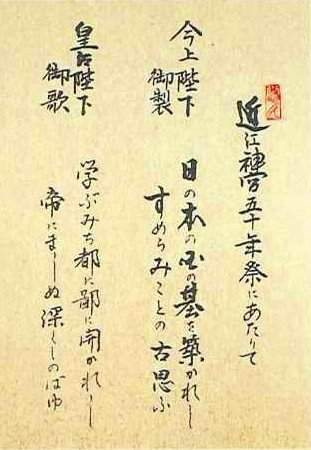 近江神宮五十年祭にあたりて
今上陛下
御製
日の本の国の基を築かれし
すめらみことの古思ふ
皇后陛下
御歌
学ぶみち都に鄙に開かれし
帝にましぬ深くしのばゆ